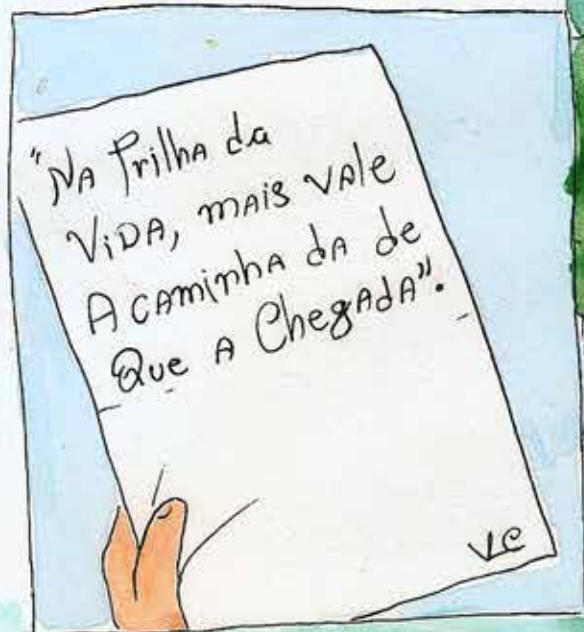 "NA Trilha da
ViDA, mAis vAle
A cAminhA dA de
Que A ChegAdA".
VC